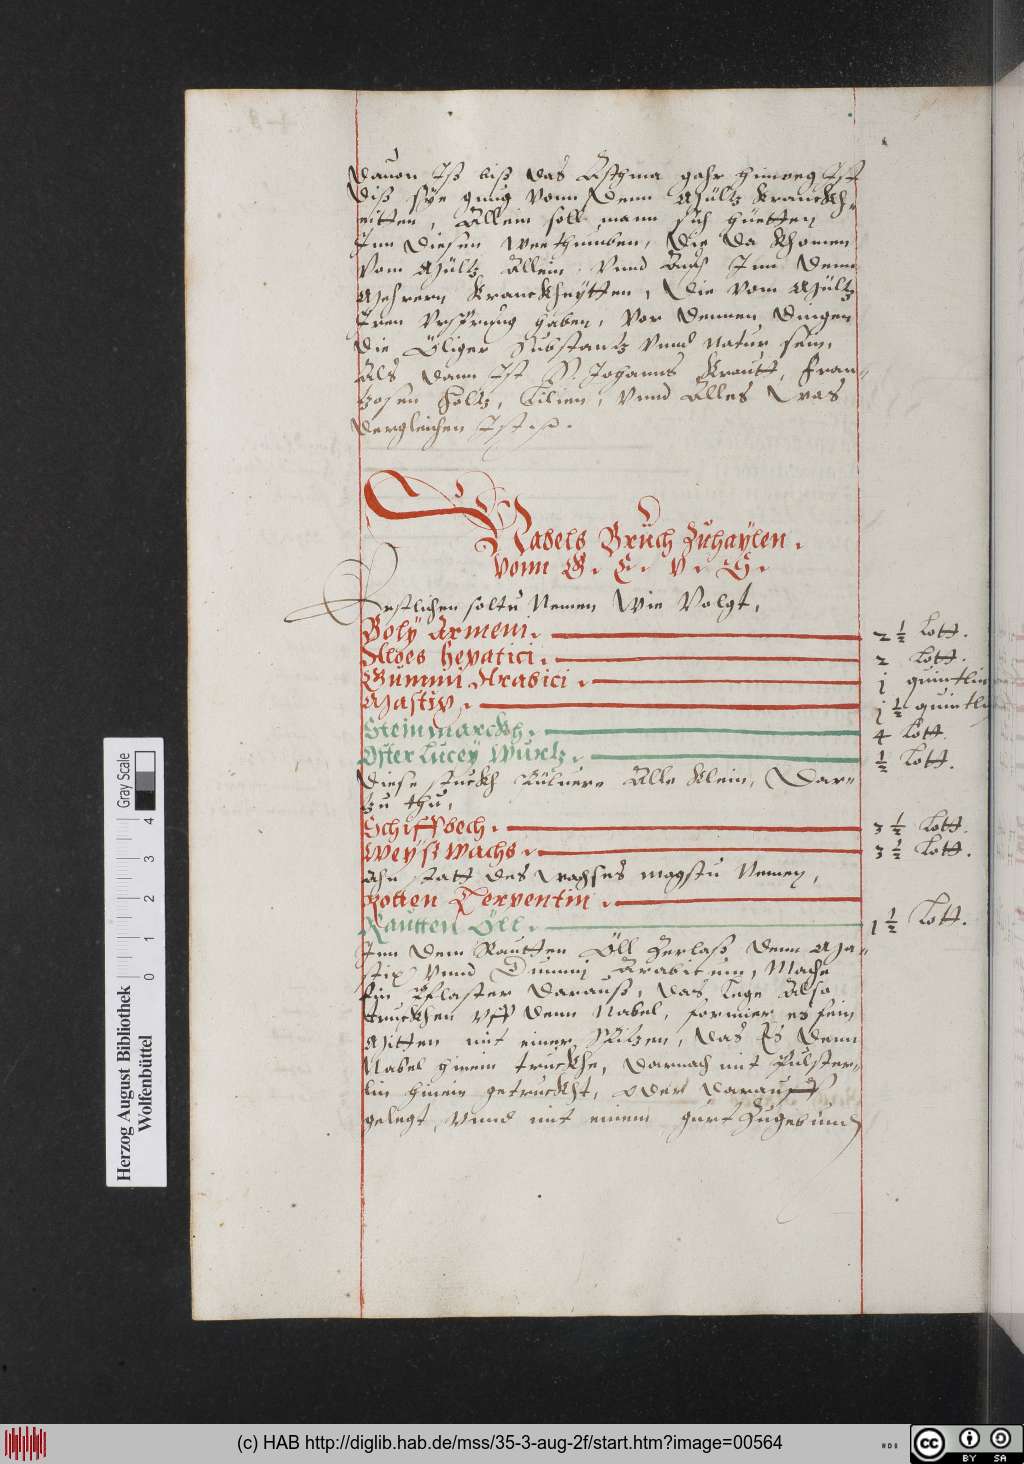 dauon Iß biß das Ästhma gahr hinweg Ist
diß seÿe gnug vonn denn Myltz Kranckh-
eitten, Allein soll mann sich hüetten
Inn diesen weethumben, die da khomen
vom Myltz Allein, vnnd Auch Inn denn
Mehrern Kranckheÿtten, die vom Myltz
Iren vrsprung haben, vor dennen dingen
die Öliger Substantz vnnd natur sein,
Als dann Ist S. Johanns Krautt, Fran-
tzosen holtz, Lilien, vnnd Alles was
dergleichen Ist
Nabels Brüch Zuhaÿlen.
vonn G. E. V. G.
Erstlichen soltu Nemen Wie Volgt,
Bolÿ Armeni. 2 ½ Lott.
Aloes hepatici. 2 Lott.
Gummi Arabici. j quintlin
Mastix. j ½ quintlin
Steinmarckh. 4 Lott.
Osterlucey Wurtz. ½ Lott.
Diese stuckh Püluere Alle klein, Dar-
zu thu,
Schiffbech. 3 ½ Lott.
Weyß wachs. 3 ½ Lott.
Ahn statt des wachses magstu Nemen,
Rotten Terpentin.
Rautten Öll. 1 ½ Lott.
Inn dem Rautten Öll Zerlaß denn Ma-
stix vnnd Gummj Arabicum, Mache
Ein Pflaster darauß, das lege Also
truckhen vff denn Nabel, formier es fein
Mitten mit einer Spitzen, das Es denn
Nabel hinein truckhe, darnach mit Pülster-
lin hinein getruckht, oder darauff
gelegt, vnnd mit einem gurt Zugebünd
Herzog August Bibliothek
Wolfenbüttel
Gray Scale
0 1 2 3 4
(c) HAB http://diglib.hab.de/mss/35-3-aug-2f/start.htm?image=00564
cc BY SA